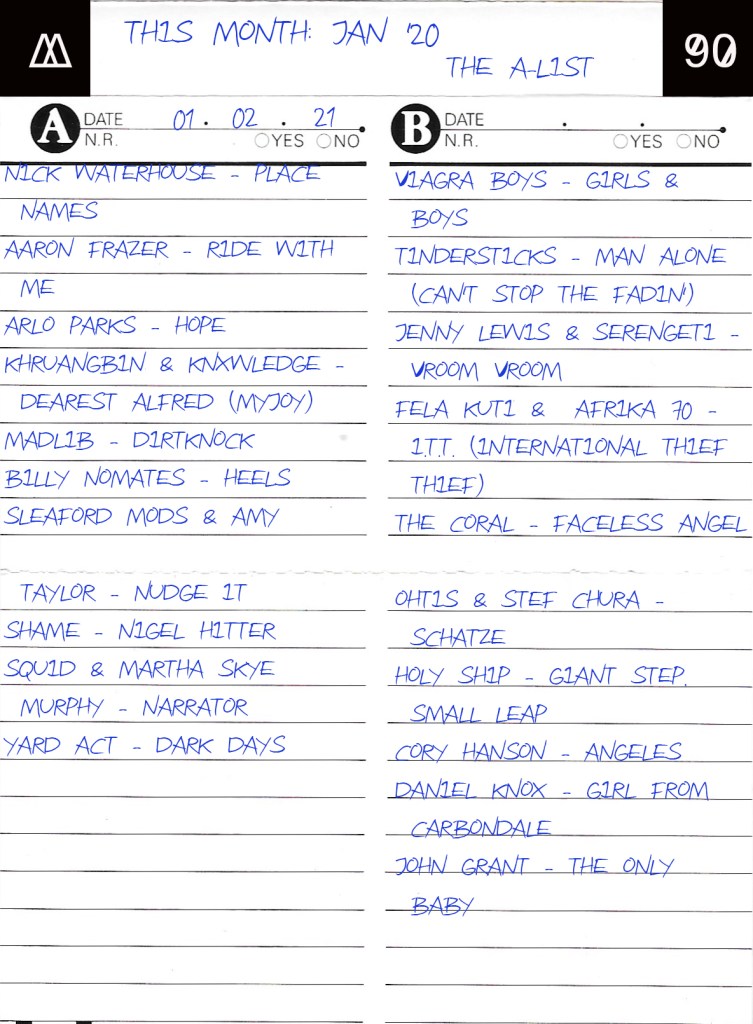 THIS MONTH: JAN '20
THE A-LIST
90
A DATE 01 . 02 . 21
N.R. YES NO
NICK WATERHOUSE - PLACE
NAMES
AARON FRAZER - RIDE WITH
ME
ARLO PARKS - HOPE
KHRUANGBIN & KNXWLEDGE -
DEAREST ALFRED (MYJOY)
MADLIB - DIRTKNOCK
BILLY NOMATES - HEELS
SLEAFORD MODS & AMY
TAYLOR - NUDGE IT
SHAME - NIGEL HITTER
SQUID & MARTHA SKYE
MURPHY - NARRATOR
YARD ACT - DARK DAYS
B DATE . .
N.R. YES NO
VIAGRA BOYS - GIRLS &
BOYS
TINDERSTICKS - MAN ALONE
(CAN'T STOP THE FADIN')
JENNY LEWIS & SERENGETI -
VROOM VROOM
FELA KUTI & AFRIKA 70 -
I.T.T. (INTERNATIONAL THIEF
THIEF)
THE CORAL - FACELESS ANGEL
OHTIS & STEF CHURA -
SCHATZE
HOLY SHIP - GIANT STEP,
SMALL LEAP
CORY HANSON - ANGELES
DANIEL KNOX - GIRL FROM
CARBONDALE
JOHN GRANT - THE ONLY
BABY